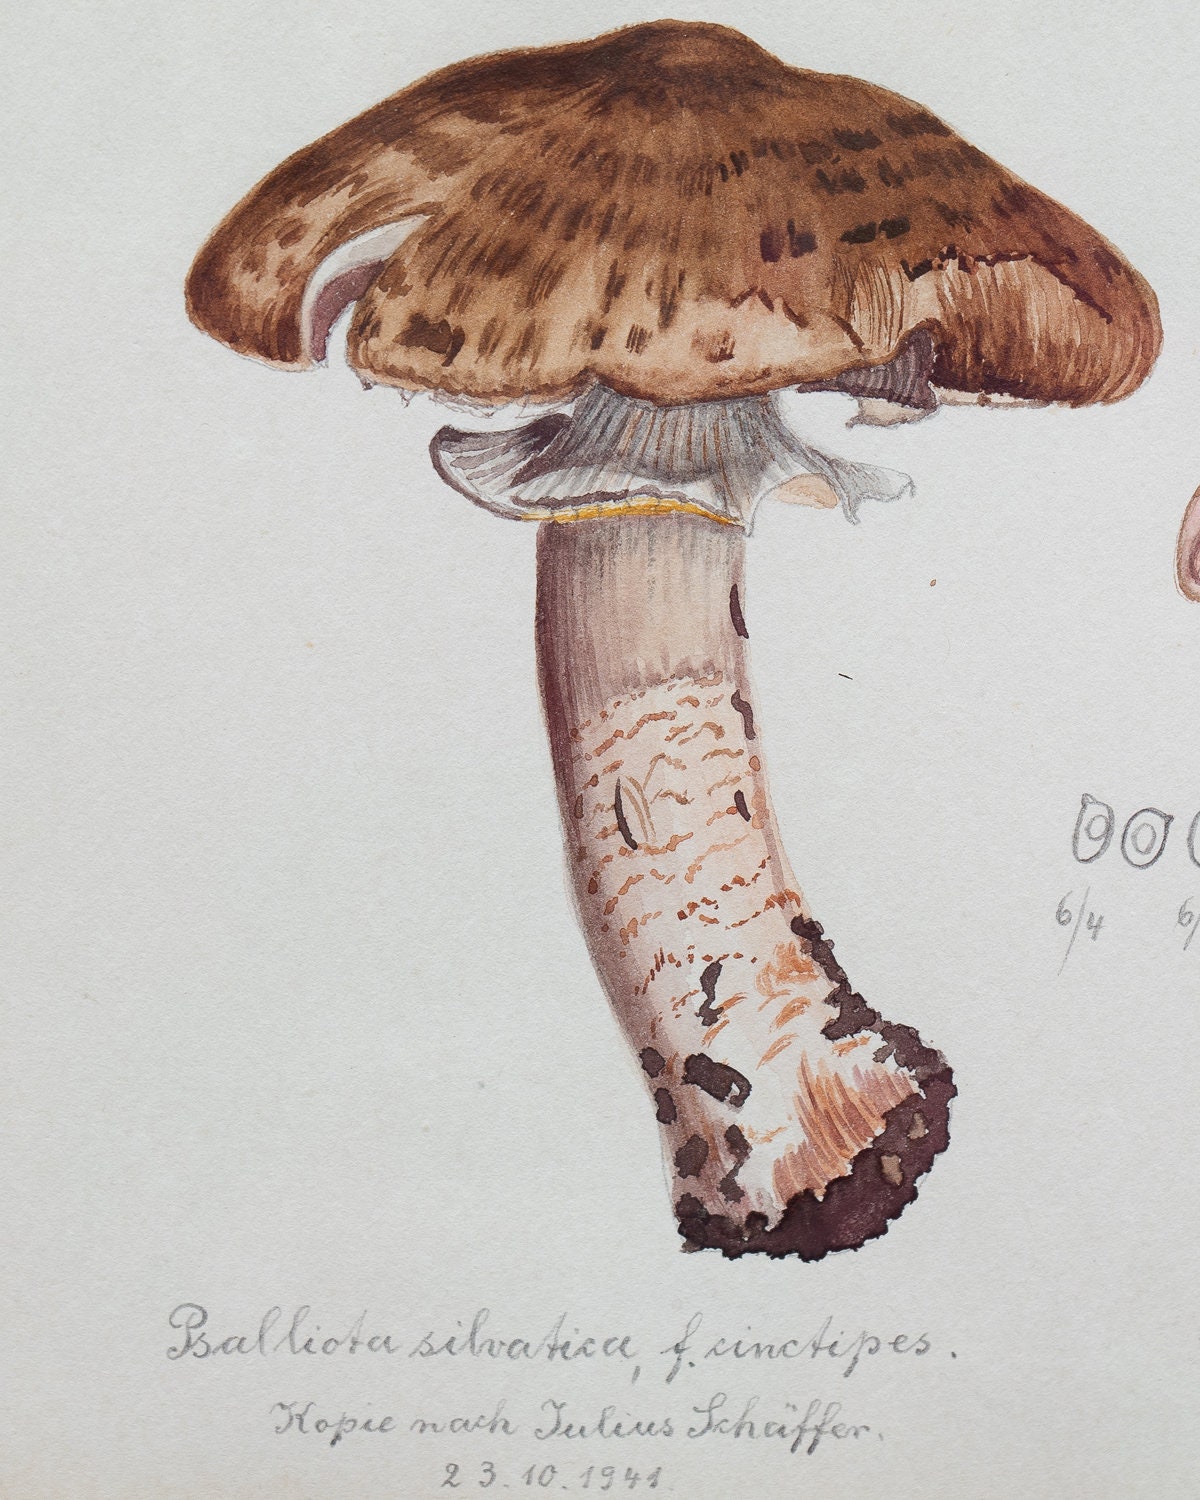 6/4 6/
Psalliota silvatica, f. cinctipes.
Kopie nach Julius Schäffer.
23.10.1941.